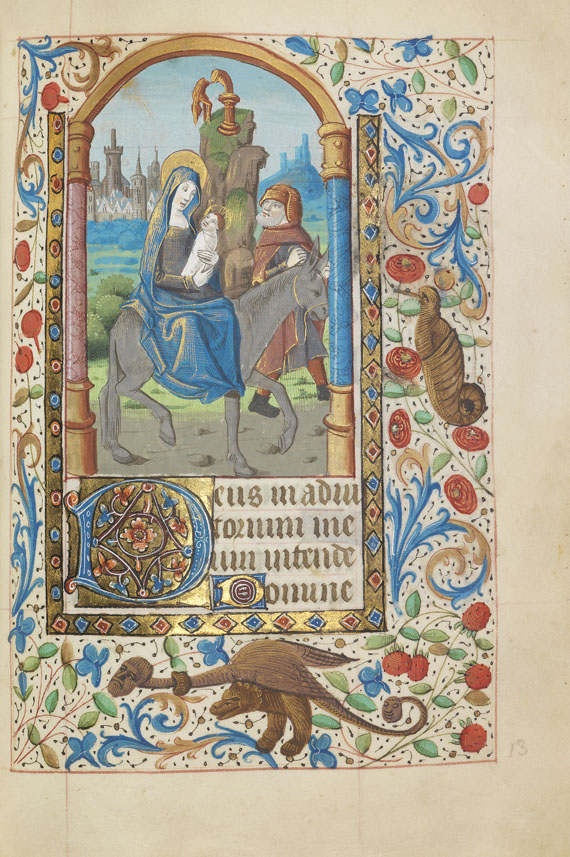 Deus in adiu
torium me
um intende
Domine
13